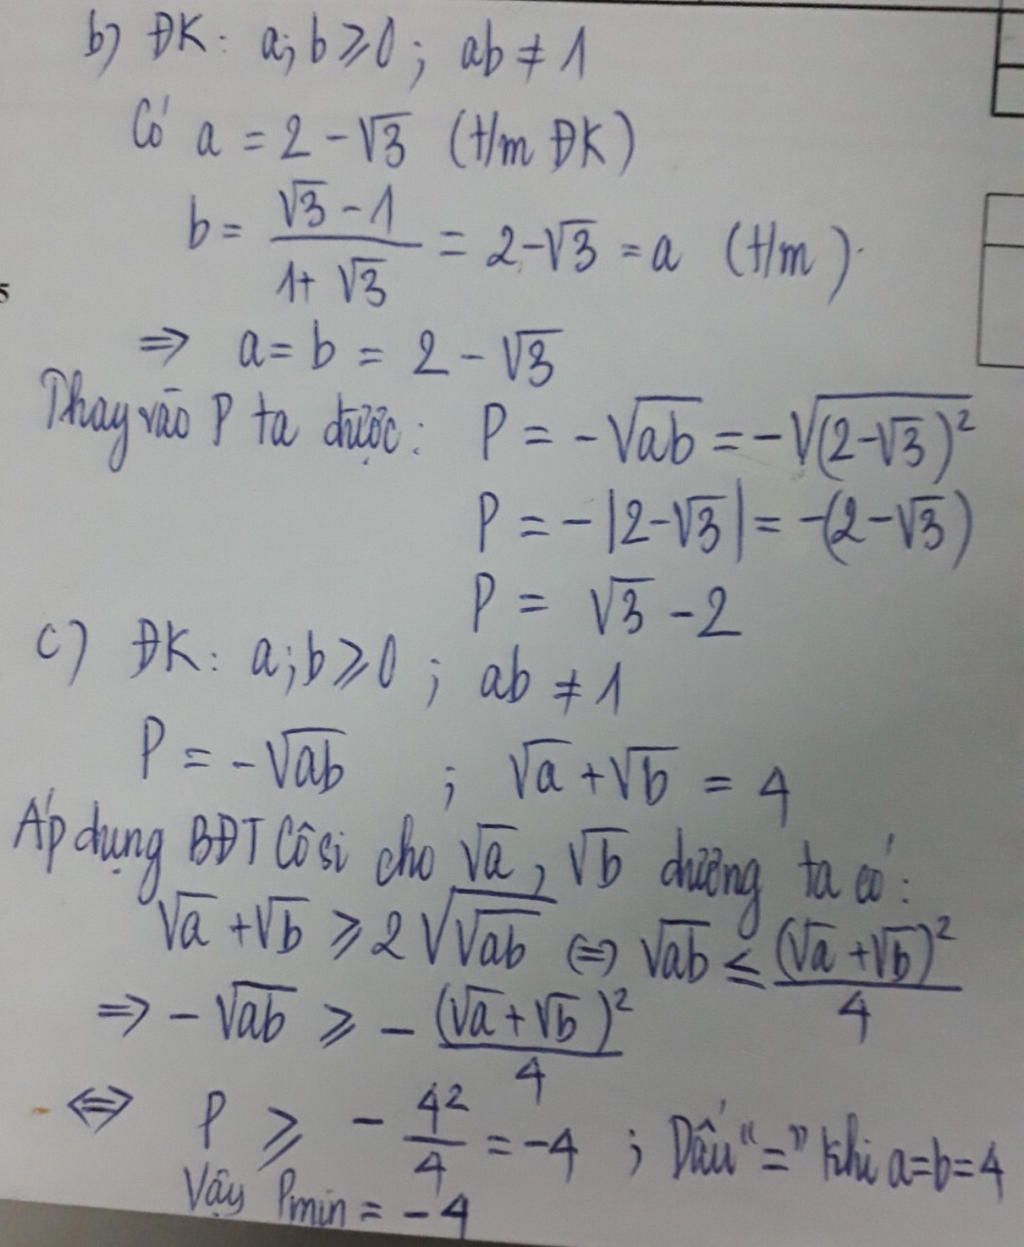 b) ĐK: a; b ≥ 0 ; ab ≠ 1
Có a = 2 - √3 (t/m ĐK)
b = (√3 - 1)/(1 + √3) = 2 - √3 = a (t/m).
⇒ a = b = 2 - √3
5
Thay vào P ta được: P = -√(ab) = -√((2-√3)²)
P = -|2-√3| = -(2-√3)
P = √3 - 2
c) ĐK: a; b ≥ 0 ; ab ≠ 1
P = -√(ab) ; √a + √b = 4
Áp dụng BĐT Côsi cho √a, √b dương ta có:
√a + √b ≥ 2√(√(ab)) ⇔ √(ab) ≤ (√a + √b)²/4
⇒ -√(ab) ≥ -(√a + √b)²/4
⇔ P ≥ -4²/4 = -4 ; Dấu "=" khi a=b=4
Vậy Pmin = -4